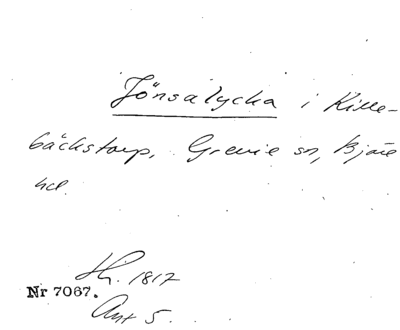 Jönsalycka i Kille-
bäckstorp, Grevie sn, Bjäre
hd.
Sk. 1817
Nr 7067.
Ant 5.